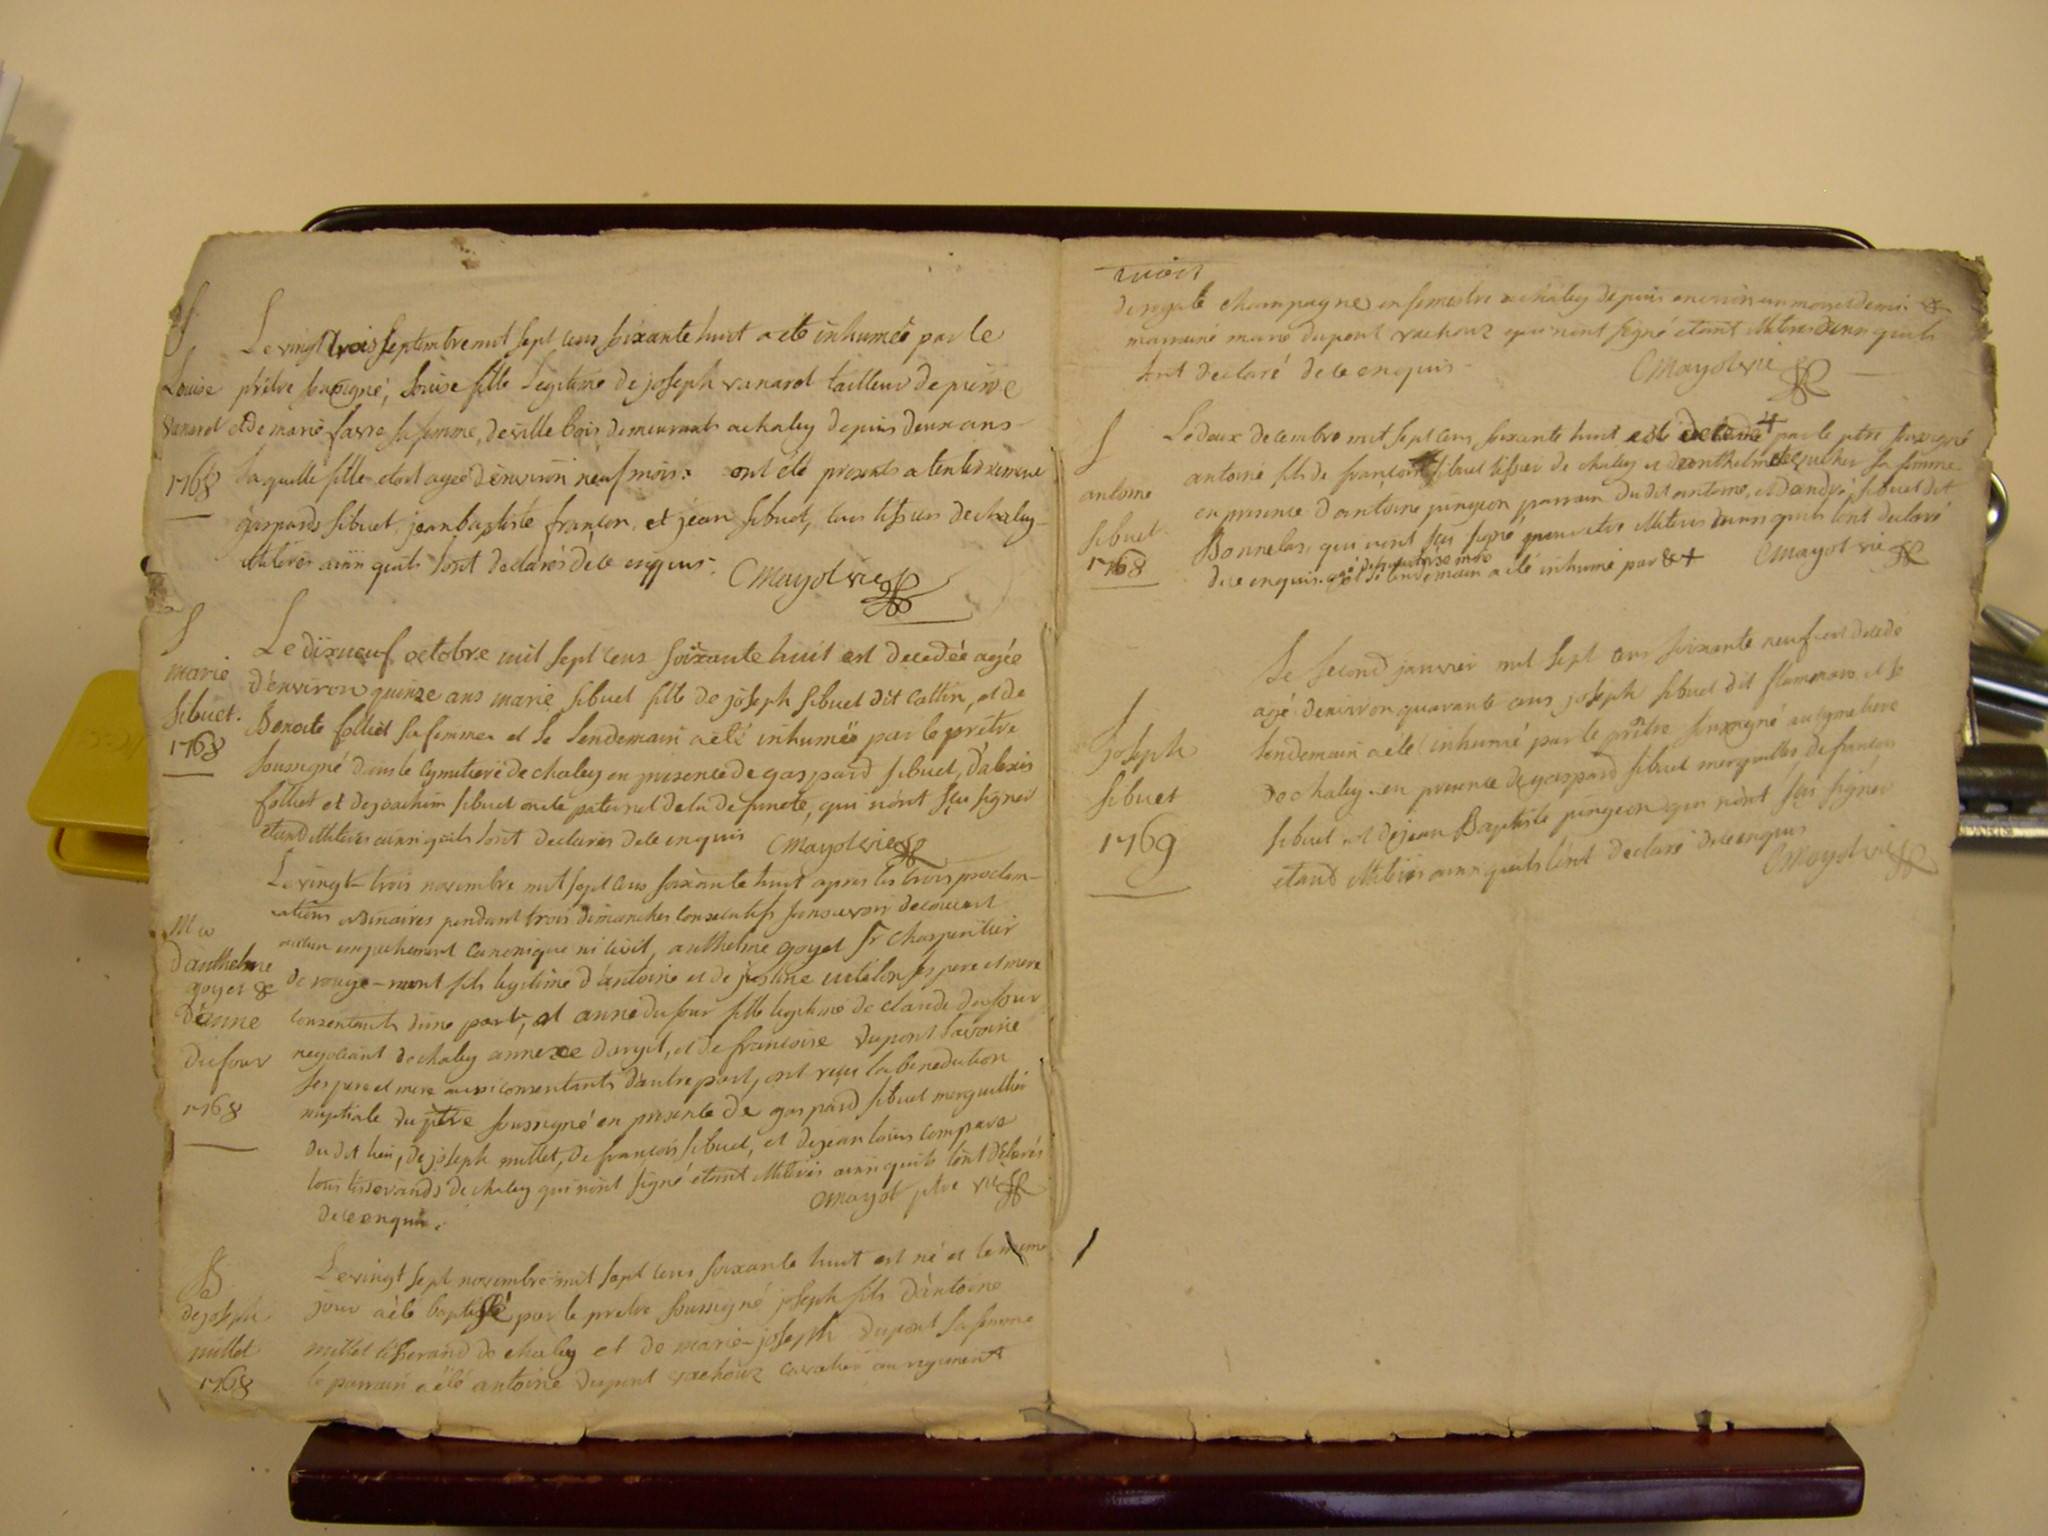 S
Louise
vanarel
1768
Le vingt trois septembre mil sept cens soixante huit a eté inhumée par le
prêtre soussigné, Louise fille legitime de joseph vanarel tailleur de pierre
et de marie favre sa femme, de villebois demeurants a chaley depuis deux ans
laquelle fille etoit agée d'environ neuf mois: ont été presents a l'enterrement
gaspard sibuet, jean baptiste françon, et jean sibuet, tous tissiers de chaley
illitérés ainsi quils l'ont declarés de ce enquis. C Mayol vic
S
marie
sibuet.
1768
Le dixneuf octobre mil sept cens soixante huit est decedée agée
d'environ quinze ans marie sibuet fille de joseph sibuet dit cattin, et de
Benoite folliet sa femme et le lendemain a eté inhumée par le prêtre
soussigné dans le cymetiere de chaley en presence de gaspard sibuet, d'alexis
folliet et de joachim sibuet oncle paternel de la defuncte, qui n'ont sçu signer
etant illitérés ainsi quils l'ont declarés de ce enquis C Mayol vic
M
d'anthelme
goyet &
d'anne
dufour
1768
Le vingt-trois novembre mil sept cens soixante huit apres les trois proclam-
ations ordinaires pendant trois dimanches consecutifs sans avoir decouvert
aucun empechement canonique ni civil, anthelme goyet charpentier
de rouge-mont fils legitime d'antoine et de justine ses pere et mere
consentants d'une part, et anne dufour fille legitime de claude dufour
negotiant de chaley annexe d'argit, et de francoise dupont
ses pere et mere aussi consentants d'autre part, ont reçu la benediction
nuptiale du ptre soussigné en presence de gaspard sibuet merguillier
du dit lieu, de joseph millet, de françois sibuet, et de jean louis compare
tous tisserands de chaley qui n'ont signé etant illitérés ainsi quils l'ont declarés
de ce enquis. C Mayol ptre vic
B
de joseph
millet
1768
Le vingt sept novembre mil sept cens soixante huit est né et le meme
jour a eté baptisé par le pretre soussigné joseph fils d'antoine
millet tisserand de chaley et de marie-joseph dupont sa femme
le parrain a eté antoine dupont vachouz cavalier au regiment
de royale champagne en semestre a chaley depuis environ un mois et demi &
marraine marie dupont vachouz qui n'ont signé etant illitérés ainsi quils
l'ont declaré de ce enquis. C Mayol vic
S
antoine
sibuet
1768
Le deux decembre mil sept cens soixante huit est decedé + par le ptre soussigné
antoine fils de françois sibuet tissier de chaley et d'anthelme sa femme
en presence d'antoine pingeon parrain du dit antoine, et d'andré sibuet dit
Bonnelas, qui n'ont sçu signé pour etre illitérés ainsi quils l'ont declaré
de ce enquis. et le lendemain a eté inhumé par & + C Mayol vic
S
joseph
sibuet
1769
Le second janvier mil sept cens soixante neuf est decedé
agé d'environ quarante ans joseph sibuet dit et le
lendemain a eté inhumé par le prêtre soussigné au cymetiere
de chaley en presence de gaspard sibuet merguillier, de françois
sibuet et de jean Baptiste pingeon qui n'ont sçu signer
etant illitérés ainsi quils l'ont declaré de ce enquis
C Mayol vic